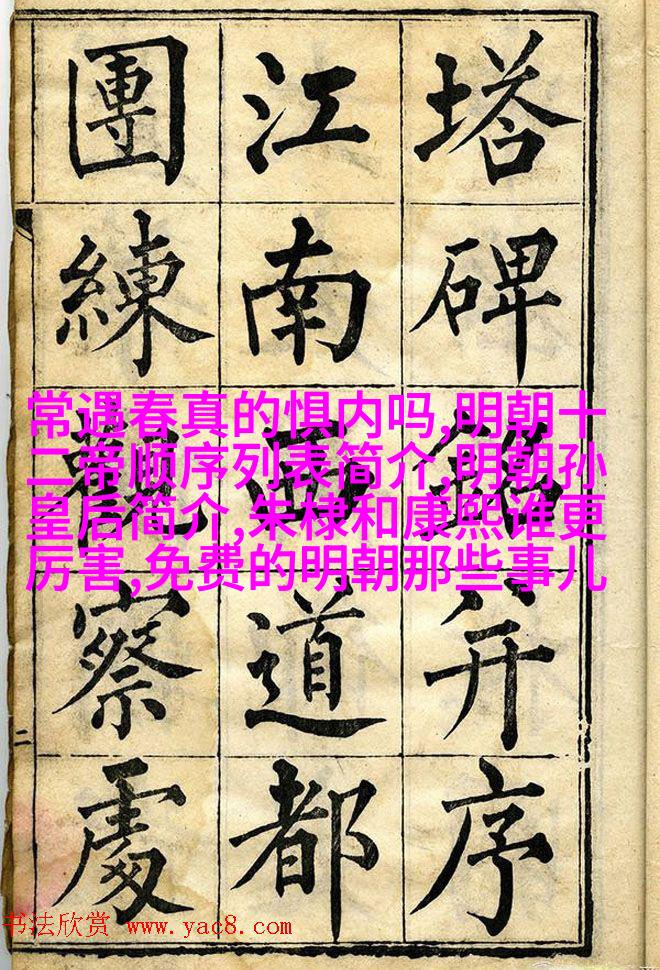 塔碑銘并序
江南西道都
團練觀察處
二
常遇春真的惧内吗,明朝十
二帝顺序列表简介,明朝孙
皇后简介,朱棣和康熙谁更
厉害,免费的明朝那些事儿
书法欣赏 www.yac8.com